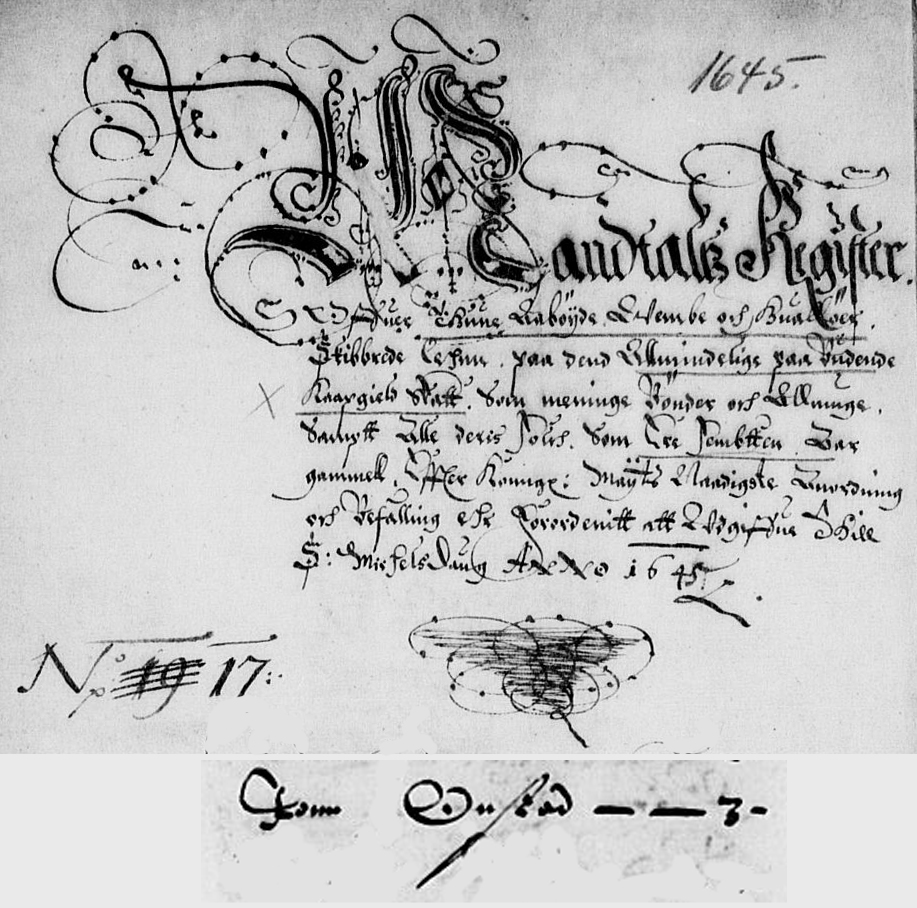 1645.
Mandtals Register
Offuer Thune, Aabøyde, Weembe och Hualøer,
Skibbrede Lehnn, paa dend Allmindelige paa Biudende
Kaapgield Skatt, Som meninge Bønder och Allmuge,
Sampt Alle deris Folch, Som Ere Sembtten Aar
gammell, Effter Konngx: Maytz Naadigste Anordning
och Befalling ehr Forordenitt att Udgiffue Thill
S: Michels Daug Anno 1645
No: 19 17:
Onstad — — 3-